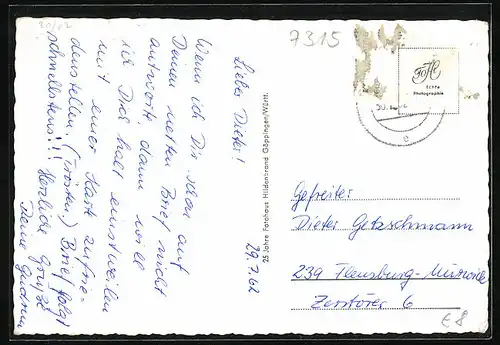 20/02
7315
FOHI
Echte
Photographie
30.
e
29.7.62
Lieber Dieter!
Wenn ich Dir schon auf
Deinen netten Brief nicht
antworte, dann will
ich Dich halt einstweilen
mit einer Karte zufrie-
denstellen. (Trösten.) Brief folgt
schnellstens!! Herzliche Grüße
Deine Gudrun
25 Jahre Fotohaus Hillidenbrand Göppingen/Württ.
Gefreiter
Dieter Getzschmann
239 Flensburg-Mürwick
Zerstörer 6
€8